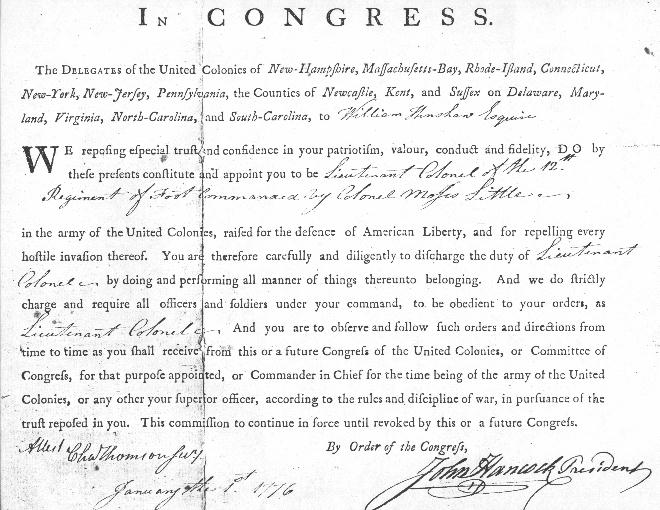 IN CONGRESS.
The DELEGATES of the United Colonies of New-Hampſhire, Maſſachuſetts-Bay, Rhode-Iſland, Connecticut,
New-York, New-Jerſey, Pennſylvania, the Counties of Newcaſtle, Kent, and Suſſex on Delaware, Mary-
land, Virginia, North-Carolina, and South-Carolina, to William Henshaw Esquire
WE repoſing eſpecial truſt and confidence in your patriotiſm, valour, conduct and fidelity, DO by
theſe preſents conſtitute and appoint you to be Lieutenant Colonel of the 12th
Regiment of Foot Commanded by Colonel Moses Little
in the army of the United Colonies, raiſed for the defence of American Liberty, and for repelling every
hoſtile invaſion thereof. You are therefore carefully and diligently to diſcharge the duty of Lieutenant
Colonel by doing and performing all manner of things thereunto belonging. And we do ſtrictly
charge and require all officers and ſoldiers under your command, to be obedient to your orders, as
Lieutenant Colonel And you are to obſerve and follow ſuch orders and directions from
time to time as you ſhall receive from this or a future Congreſs of the United Colonies, or Committee of
Congreſs, for that purpoſe appointed, or Commander in Chief for the time being of the army of the United
Colonies, or any other your ſuperior officer, according to the rules and diſcipline of war, in purſuance of the
truſt repoſed in you. This commiſſion to continue in force until revoked by this or a future Congreſs.
By Order of the Congreſs,
Attest Cha Thomson Secy
John Hancock President
January the 1st 1776